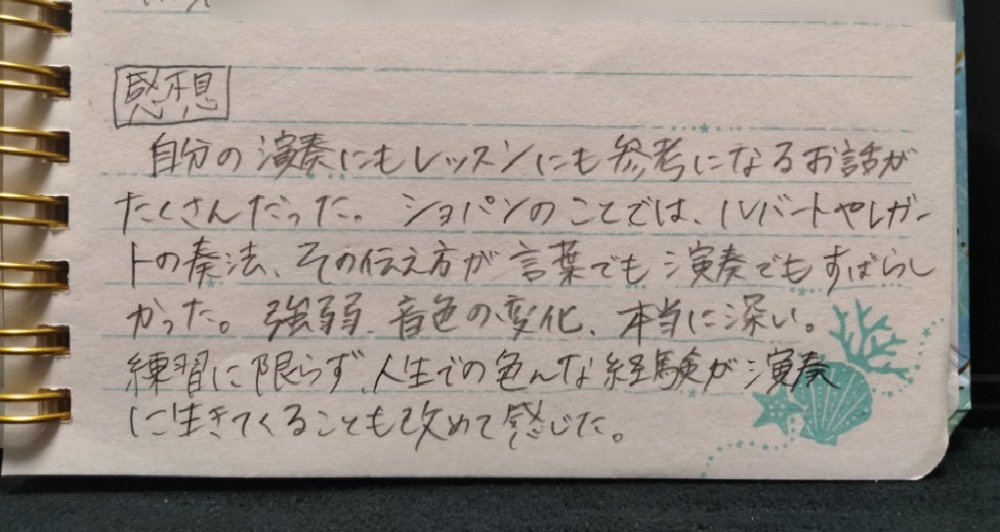 感想
自分の演奏にもレッスンにも参考になるお話が
たくさんだった。ショパンのことでは、ルバートやレガー
トの奏法、その伝え方が言葉でも演奏でもすばらし
かった。強弱、音色の変化、本当に深い。
練習に限らず、人生での色んな経験が演奏
に生きてくることも改めて感じた。